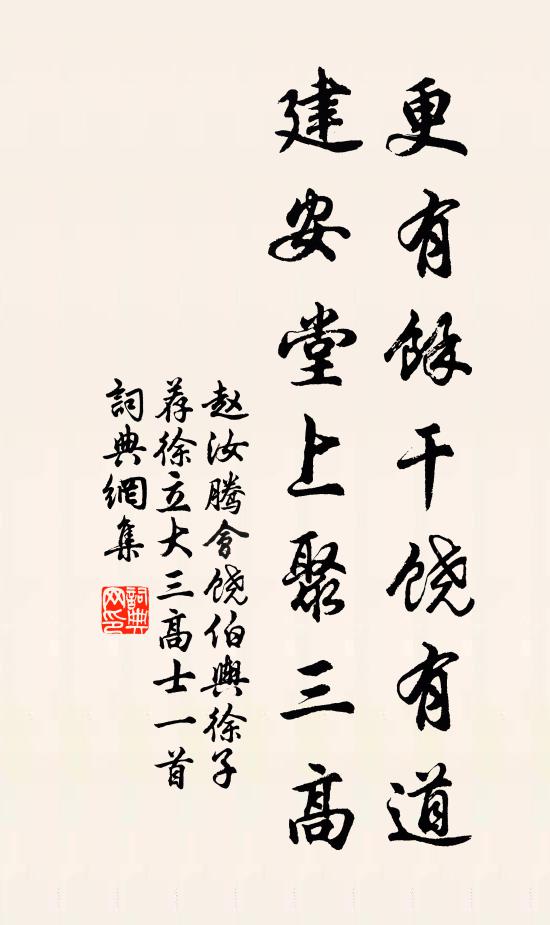 更有餘干饶有道
建安堂上聚三高
赵汝腾會饶伯舆徐子
荐徐立大三高士一首
詞典網集
詞典
网印